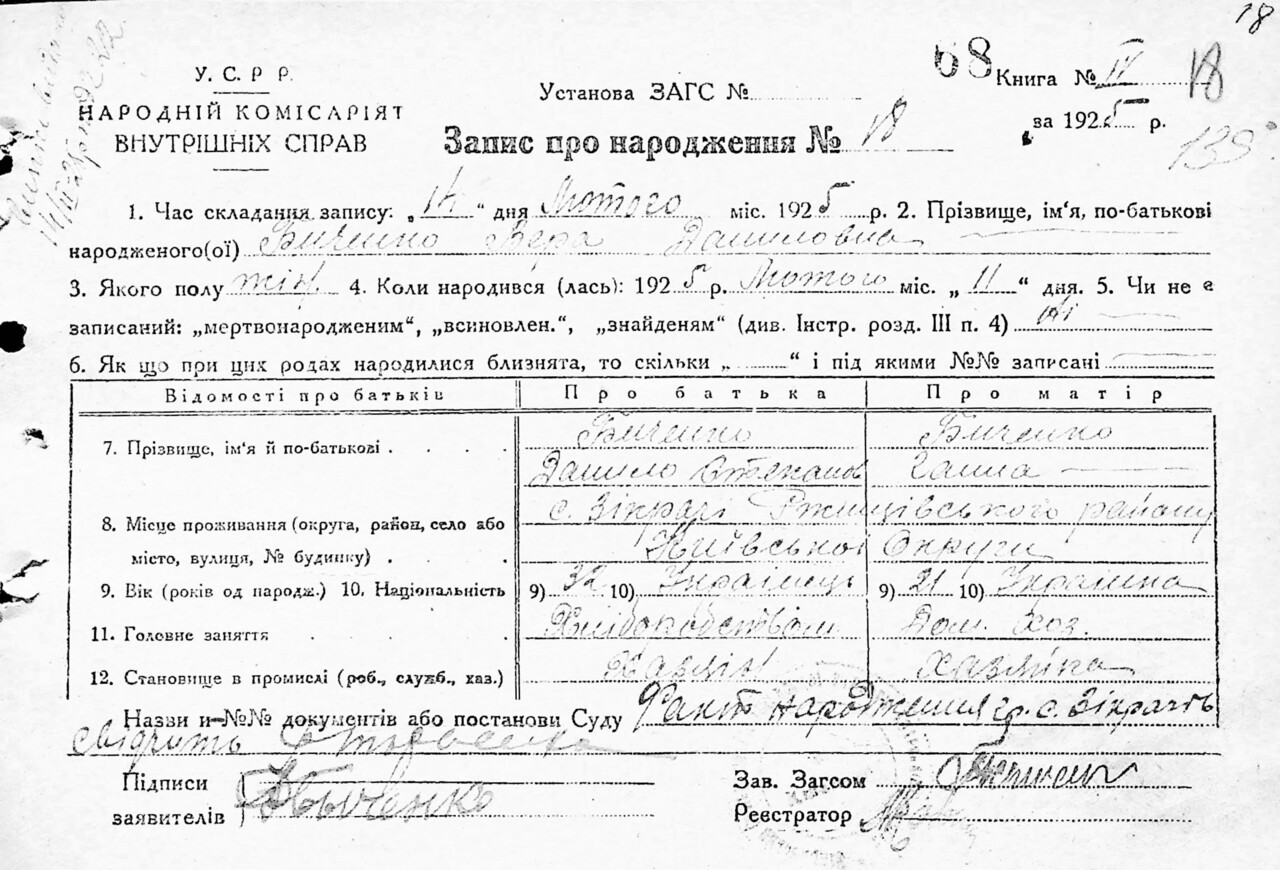 18
У. С. Р Р.
НАРОДНІЙ КОМІСАРІЯТ
ВНУТРІШНІХ СПРАВ
Установа ЗАГС №
68 Книга № IV 18
за 1925 р.
139
Запис про народження № 18
1. Час складання запису: „14“ дня Лютого міс. 1925 р. 2. Прізвище, ім‘я, по-батькові
народженого(ої) Биченко Вера Даниловна
3. Якого полу жін. 4. Коли народився (лась): 1925 р. Лютого міс. „11“ дня. 5. Чи не є
записаний: „мертвонародженим“, „всиновлен.“, „знайденям“ (див. Інстр. розд. III п. 4) Ні
6. Як що при цих родах народилися близнята, то скільки „ “ і під якими №№ записані
Відомості про батьків Про батька Про матір
7. Прізвище, ім‘я й по-батькові . . . . Биченко Биченко
Данило Степанов Ганна
8. Місце проживання (округа, район, село або с. Зікрачі Ржищівського району
місто, вулиця, № будинку) . . Київської Округи
9. Вік (років од народж.) 10. Національність 9) 32 10) Українець 9) 21 10) Українка
11. Головне заняття . . . . Хліборобством Дом. хоз.
12. Становище в промислі (роб., служб., хаз.) Хазяїн Хазяйка
Назви и №№ документів або постанови Суду Факт народження гр. с. Зікрачів
свідчить
Підписи
заявителів Быченко
Зав. Загсом
Реєстратор